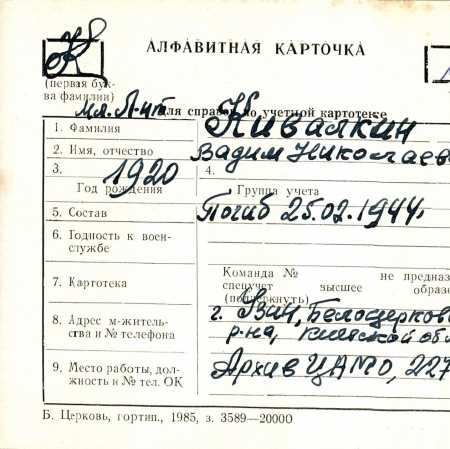 К
АЛФАВИТНАЯ КАРТОЧКА
(первая бук-
ва фамилии)
мл. л-нт
для справок по учетной картотеке
1. Фамилия Кивалкин
2. Имя, отчество Вадим Николаев
3. 1920 4.
Год рождения Группа учета
5. Состав Погиб 25.02.1944.
6. Годность к воен-
службе
Команда № не предназ
7. Картотека спецучет высшее образо
(подчеркнуть)
8. Адрес м-житель- г. Узин, Белоцерков
ства и № телефона р-на, Киевской обл
9. Место работы, дол- Архив ЦАМО, 227
жность и № тел. ОК
Б. Церковь, гортип., 1985, з. 3589—20000